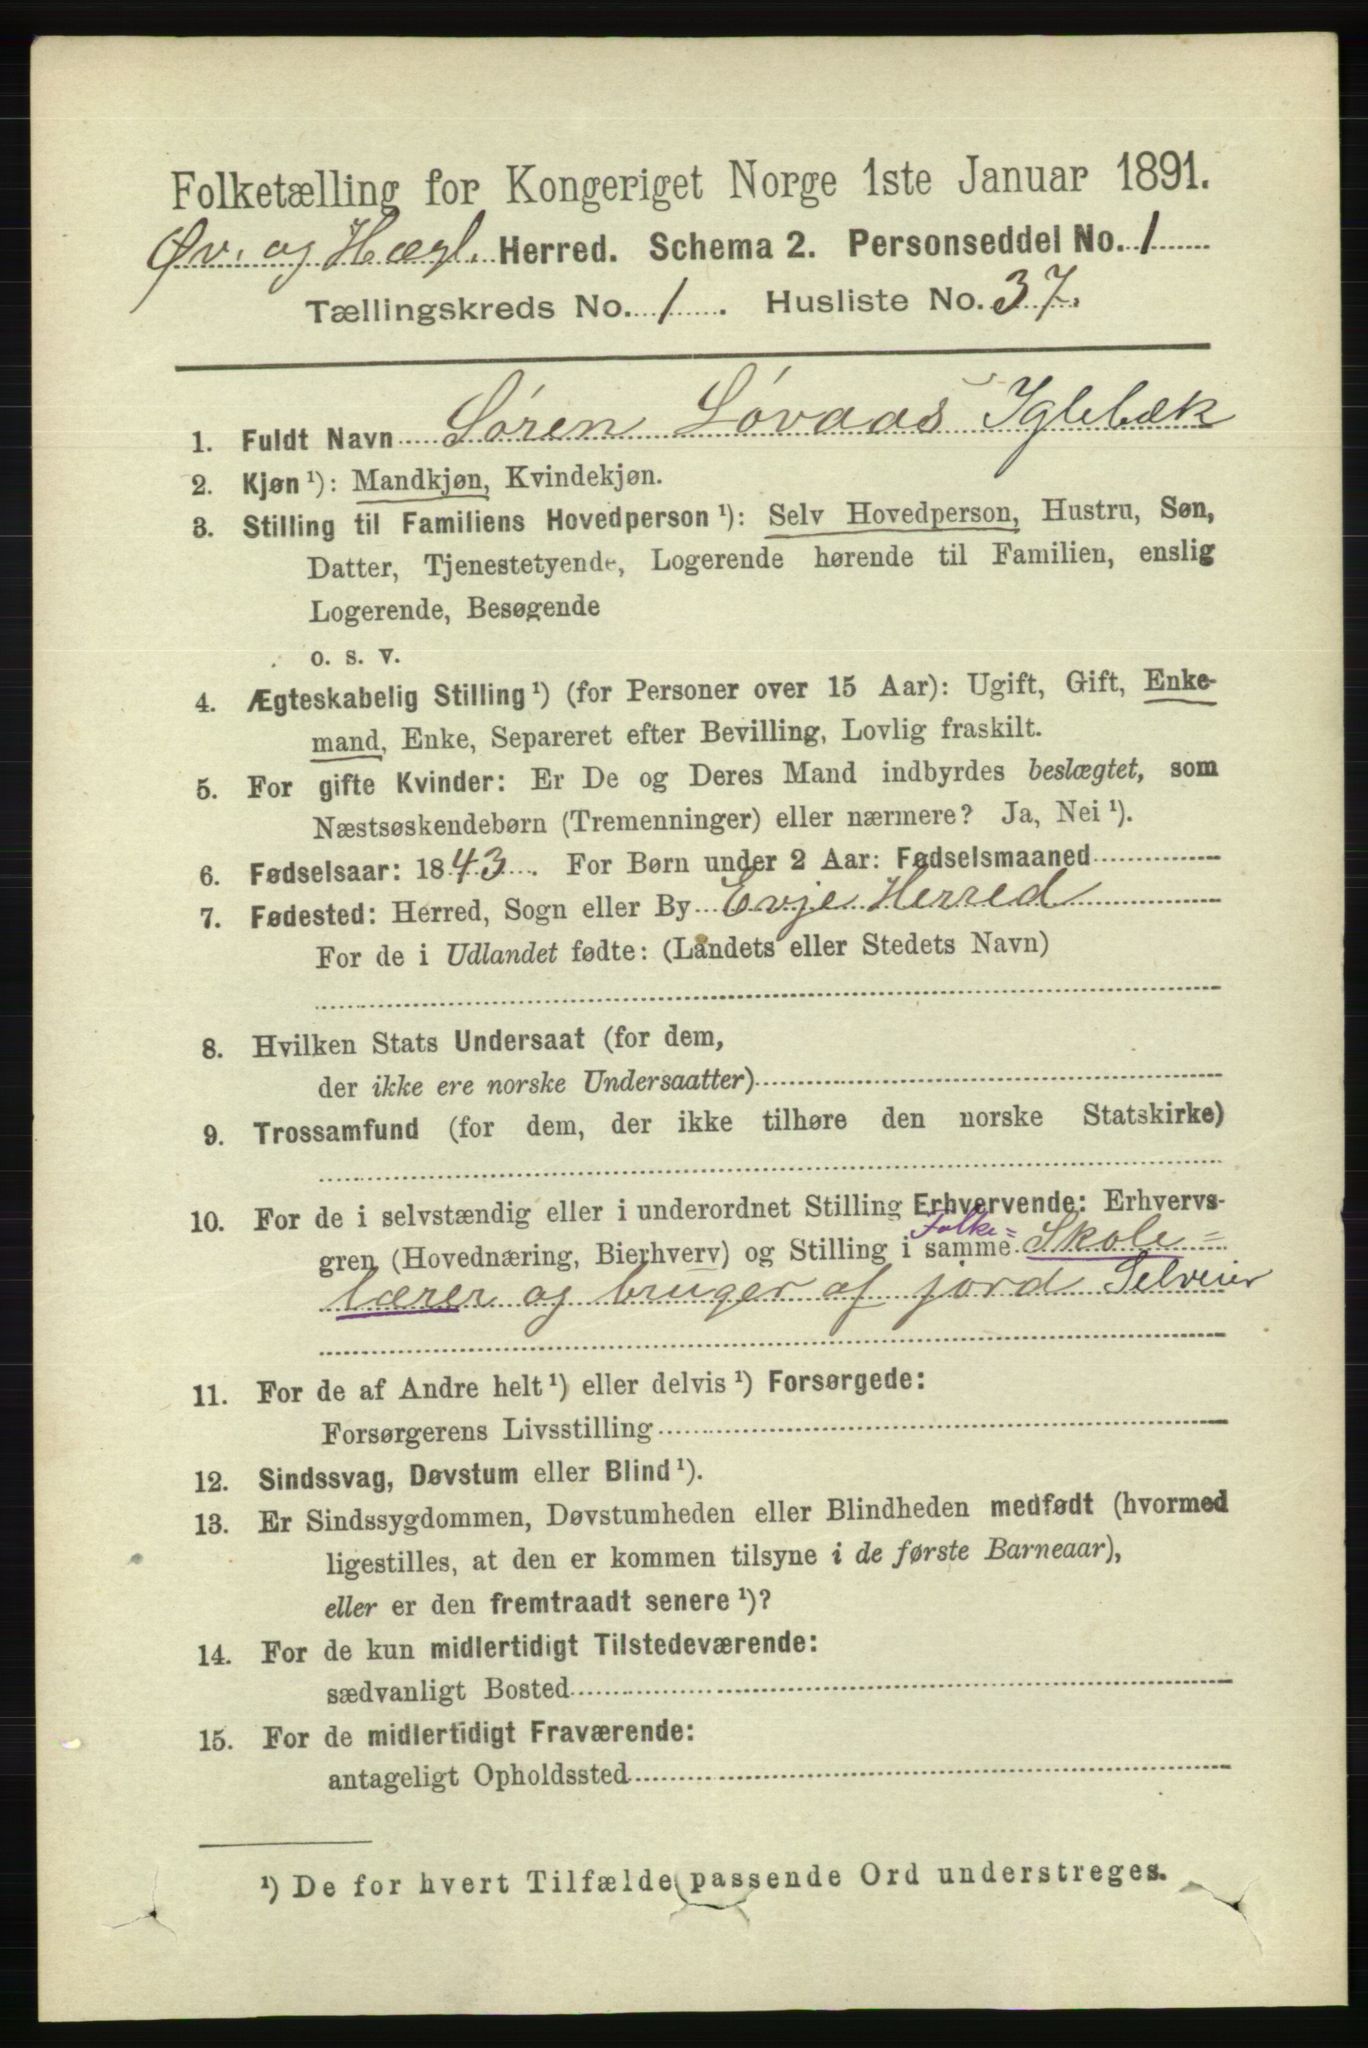 Folketælling for Kongeriget Norge 1ste Januar 1891.
Øv. og Hægl. Herred. Schema 2. Personseddel No. 1
Tællingskreds No. 1. Husliste No. 37.
1. Fuldt Navn Søren Løvaas Iglebæk
2. Kjøn ¹): Mandkjøn, Kvindekjøn.
3. Stilling til Familiens Hovedperson ¹): Selv Hovedperson, Hustru, Søn,
Datter, Tjenestetyende, Logerende hørende til Familien, enslig
Logerende, Besøgende
o. s. v.
4. Ægteskabelig Stilling ¹) (for Personer over 15 Aar): Ugift, Gift, Enke-
mand, Enke, Separeret efter Bevilling, Lovlig fraskilt.
5. For gifte Kvinder: Er De og Deres Mand indbyrdes beslægtet, som
Næstsøskendebørn (Tremenninger) eller nærmere? Ja, Nei ¹).
6. Fødselsaar: 1843. For Børn under 2 Aar: Fødselsmaaned
7. Fødested: Herred, Sogn eller By Evje Herred
For de i Udlandet fødte: (Landets eller Stedets Navn)
8. Hvilken Stats Undersaat (for dem,
der ikke ere norske Undersaatter)
9. Trossamfund (for dem, der ikke tilhøre den norske Statskirke)
10. For de i selvstændig eller i underordnet Stilling Erhvervende: Erhvervs-
Folke=
gren (Hovednæring, Bierhverv) og Stilling i samme Skole=
lærer og bruger af jord Selveier
11. For de af Andre helt ¹) eller delvis ¹) Forsørgede:
Forsørgerens Livsstilling
12. Sindssvag, Døvstum eller Blind ¹).
13. Er Sindssygdommen, Døvstumheden eller Blindheden medfødt (hvormed
ligestilles, at den er kommen tilsyne i de første Barneaar),
eller er den fremtraadt senere ¹)?
14. For de kun midlertidigt Tilstedeværende:
sædvanligt Bosted
15. For de midlertidigt Fraværende:
antageligt Opholdssted
¹) De for hvert Tilfælde passende Ord understreges.